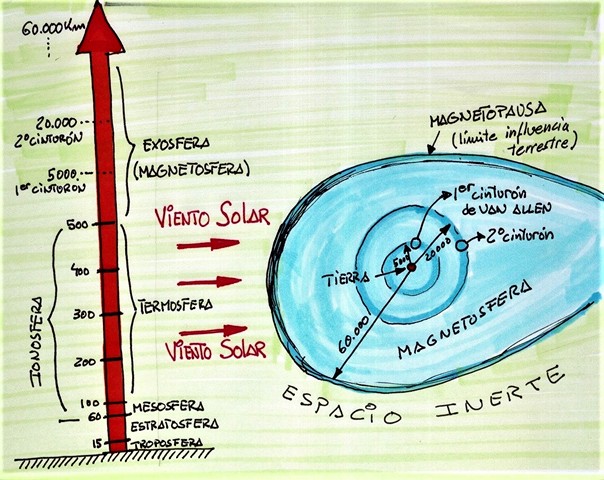 60.000Km
20.000
2º cinturón
5000
1er cinturon
500
400
300
200
100
60
15
IONOSFERA
EXOSFERA
(MAGNETOSFERA)
TERMOSFERA
MESOSFERA
ESTRATOSFERA
TROPOSFERA
VIENTO SOLAR
VIENTO SOLAR
MAGNETOPAUSA
(límite influencia
terrestre)
1er cinturón
de VAN ALLEN
2º cinturón
5000
20000
TIERRA
60.000
MAGNETOSFERA
ESPACIO INERTE